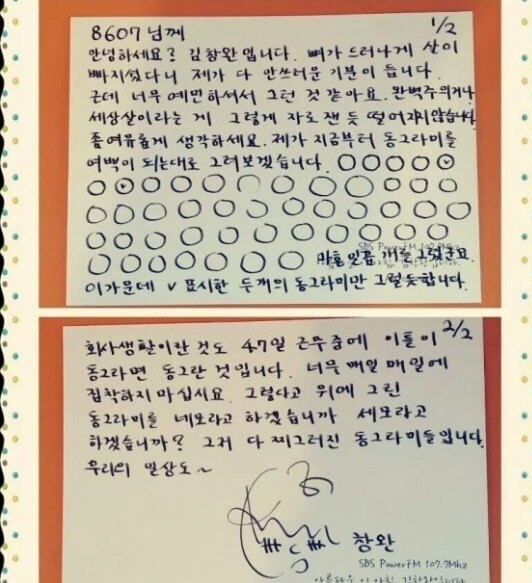 1/2
8607님께
안녕하세요? 김창완입니다. 뼈가 드러나게 살이
빠지셨다니 제가 다 안쓰러운 기분이 듭니다.
근데 너무 예민하셔서 그런 것 같아요. 완벽주의거나
세상살이라는 게 그렇게 자로 잰 듯 떨어지지 않습니다.
좀 여유롭게 생각하세요. 제가 지금부터 동그라미를
여백이 되는대로 그려보겠습니다.
SBS PowerFM 107.7Mhz
마흔일곱 개를 그렸군요.
이 가운데 v 표시한 두 개의 동그라미만 그럴듯합니다.
2/2
회사생활이란 것도 47일 근무 중에 이틀이
동그라면 동그란 것입니다. 너무 매일 매일에
집착하지 마십시요. 그렇다고 위에 그린
동그라미를 네모라고 하겠습니까 세모라고
하겠습니까? 그저 다 찌그러진 동그라미들입니다.
우리의 일상도~
창완
SBS PowerFM 107.7Mhz